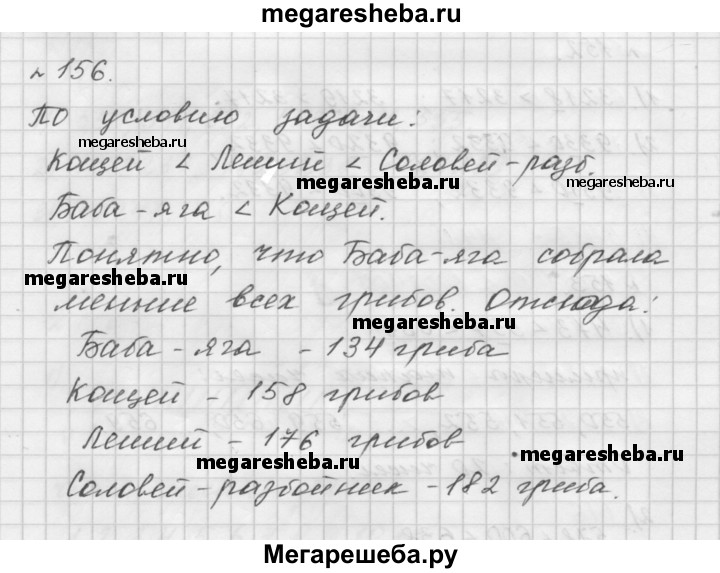 megaresheba.ru
№ 156.
По условию задачи:
megaresheba.ru
Кощей < Леший < Соловей-разб.
megaresheba.ru
megaresheba.ru
Баба-яга < Кощей.
Понятно, что Баба-яга собрала
megaresheba.ru
меньше всех грибов. Отсюда:
megaresheba.ru
Баба-яга - 134 гриба
Кощей - 158 грибов
Леший - 176 грибов
megaresheba.ru
megaresheba.ru
Соловей-разбойник - 182 гриба.
Мегарешеба.ру